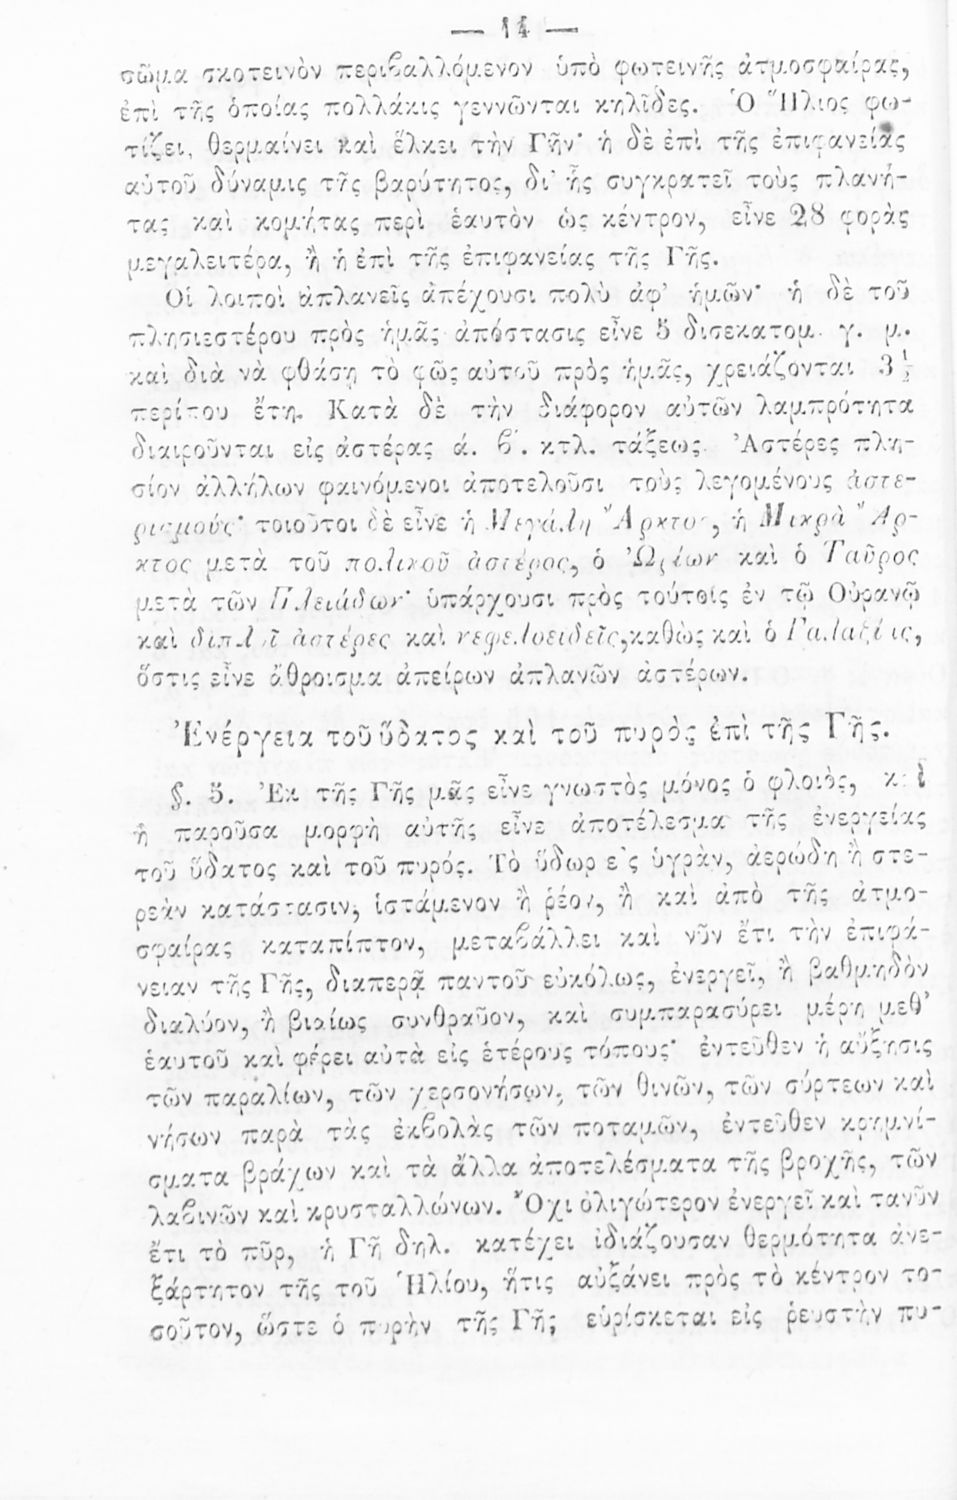 — 14 —
σῶμα σκοτεινὸν περιβαλλόμενον ὑπὸ φωτεινῆς ἀτμοσφαίρας,
ἐπὶ τῆς ὁποίας πολλάκις γεννῶνται κηλῖδες. Ὁ Ἥλιος φω-
τίζει, θερμαίνει καὶ ἕλκει τὴν Γῆν· ἡ δὲ ἐπὶ τῆς ἐπιφανείας
αὐτοῦ δύναμις τῆς βαρύτητος, δι' ἧς συγκρατεῖ τοὺς πλανή-
τας καὶ κομήτας περὶ ἑαυτὸν ὡς κέντρον, εἶνε 28 φορὰς
μεγαλειτέρα, ἢ ἡ ἐπὶ τῆς ἐπιφανείας τῆς Γῆς.
Οἱ λοιποὶ ἀπλανεῖς ἀπέχουσι πολὺ ἀφ' ἡμῶν· ἡ δὲ τοῦ
πλησιεστέρου πρὸς ἡμᾶς ἀπόστασις εἶνε 5 δισεκατομ. γ. μ.
καὶ διὰ νὰ φθάσῃ τὸ φῶς αὐτοῦ πρὸς ἡμᾶς, χρειάζονται 3 ½
περίπου ἔτη. Κατὰ δὲ τὴν διάφορον αὐτῶν λαμπρότητα
διαιροῦνται εἰς ἀστέρας ά. β'. κτλ. τάξεως. Ἀστέρες πλη-
σίον ἀλλήλων φαινόμενοι ἀποτελοῦσι τοὺς λεγομένους ἀστε-
ρισμούς· τοιοῦτοι δὲ εἶνε ἡ Μεγάλη Ἄρκτος, ἡ Μικρὰ Ἄρ-
κτος μετὰ τοῦ πολικοῦ ἀστέρος, ὁ Ὠρίων καὶ ὁ Ταῦρος
μετὰ τῶν Πλειάδων· ὑπάρχουσι πρὸς τούτοις ἐν τῷ Οὐρανῷ
καὶ διπλοῖ ἀστέρες καὶ νεφελοειδεῖς, καθὼς καὶ ὁ Γαλαξίας,
ὅστις εἶνε ἄθροισμα ἀπείρων ἀπλανῶν ἀστέρων.
Ἐνέργεια τοῦ ὕδατος καὶ τοῦ πυρὸς ἐπὶ τῆς Γῆς.
§. 5. Ἐκ τῆς Γῆς μᾶς εἶνε γνωστὸς μόνος ὁ φλοιὸς, καὶ
ἡ παροῦσα μορφὴ αὐτῆς εἶνε ἀποτέλεσμα τῆς ἐνεργείας
τοῦ ὕδατος καὶ τοῦ πυρός. Τὸ ὕδωρ εἰς ὑγρὰν, ἀερώδη ἢ στε-
ρεὰν κατάστασιν, ἱστάμενον ἢ ῥέον, ἢ καὶ ἀπὸ τῆς ἀτμο-
σφαίρας καταπίπτον, μεταβάλλει καὶ νῦν ἔτι τὴν ἐπιφά-
νειαν τῆς Γῆς, διαπερᾷ παντοῦ εὐκόλως, ἐνεργεῖ, ἢ βαθμηδὸν
διαλύον, ἢ βιαίως συνθραῦον, καὶ συμπαρασύρει μέρη μεθ'
ἑαυτοῦ καὶ φέρει αὐτὰ εἰς ἑτέρους τόπους· ἐντεῦθεν ἡ αὔξησις
τῶν παραλίων, τῶν χερσονήσων, τῶν θινῶν, τῶν σύρτεων καὶ
νήσων παρὰ τὰς ἐκβολὰς τῶν ποταμῶν, ἐντεῦθεν κρημνί-
σματα βράχων καὶ τὰ ἄλλα ἀποτελέσματα τῆς βροχῆς, τῶν
λαβινῶν καὶ κρυσταλλώνων. Ὄχι ὀλιγώτερον ἐνεργεῖ καὶ τανῦν
ἔτι τὸ πῦρ, ἡ Γῆ δηλ. κατέχει ἰδιάζουσαν θερμότητα ἀνε-
ξάρτητον τῆς τοῦ Ἡλίου, ἥτις αὐξάνει πρὸς τὸ κέντρον το-
σοῦτον, ὥστε ὁ πυρὴν τῆς Γῆς εὑρίσκεται εἰς ῥευστὴν πυ-